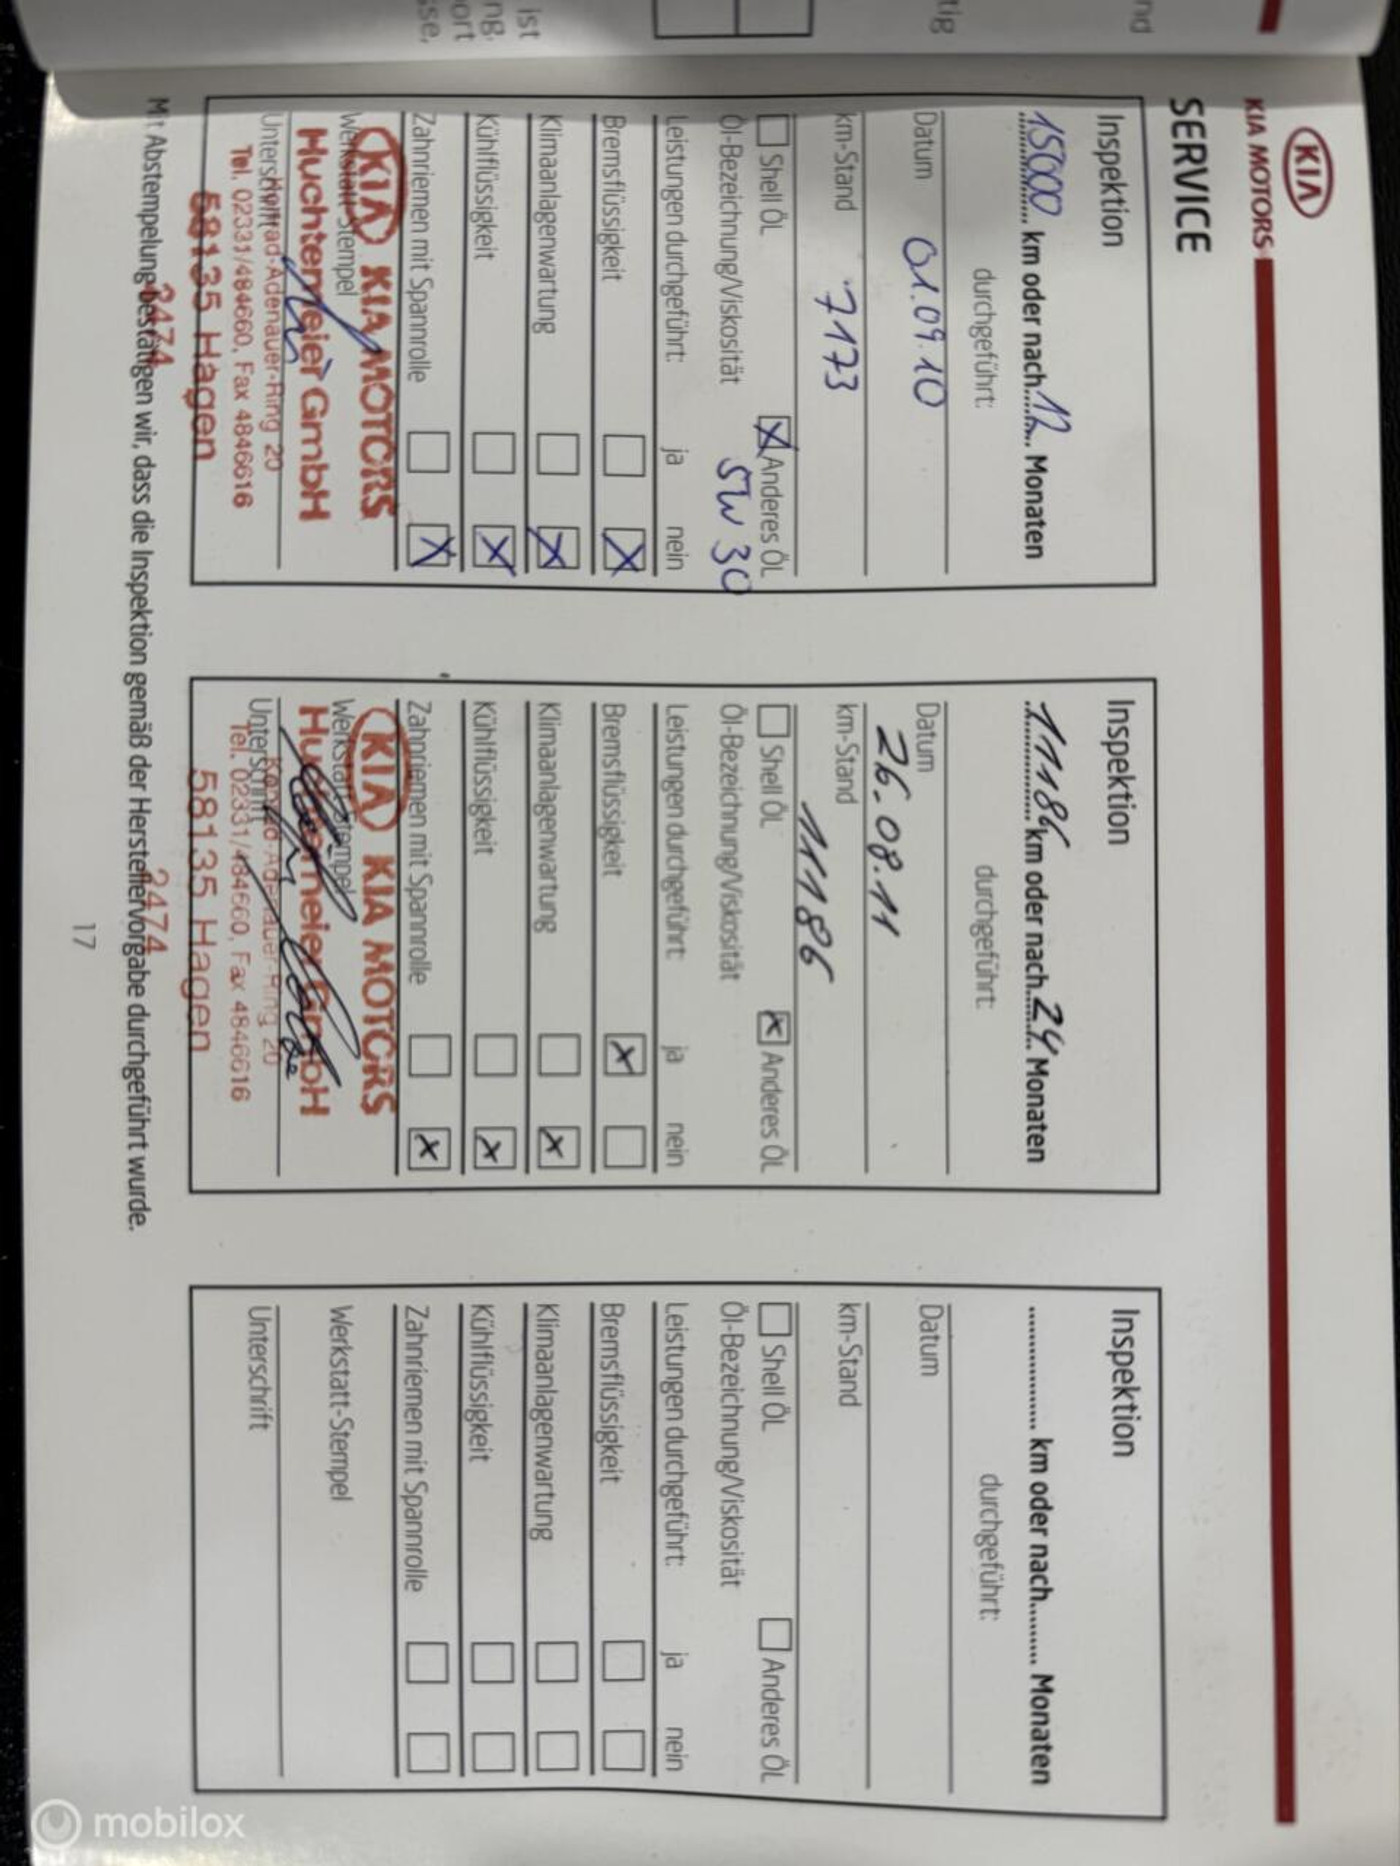 KIA
KIA MOTORS
SERVICE
Inspektion
15000 km oder nach 12 Monaten
durchgeführt:
Datum 01.09.10
km-Stand 7173
Shell ÖL X Anderes ÖL
Öl-Bezeichnung/Viskosität 5W30
Leistungen durchgeführt: ja nein
Bremsflüssigkeit X
Klimaanlagenwartung X
Kühlflüssigkeit X
Zahnriemen mit Spannrolle X
KIA KIA MOTORS
Werkstatt-Stempel
Huchtemeier GmbH
Unterschrift
Konrad-Adenauer-Ring 20
Tel. 02331/484660, Fax 4846616
58135 Hagen
2474
Inspektion
11186 km oder nach 24 Monaten
durchgeführt:
Datum
26.08.11
km-Stand
11186
Shell ÖL x Anderes ÖL
Öl-Bezeichnung/Viskosität
Leistungen durchgeführt: ja nein
Bremsflüssigkeit x
Klimaanlagenwartung x
Kühlflüssigkeit x
Zahnriemen mit Spannrolle x
KIA KIA MOTORS
Werkstatt-Stempel
Huchtemeier GmbH
Unterschrift
Konrad-Adenauer-Ring 20
Tel. 02331/484660, Fax 4846616
58135 Hagen
2474
Inspektion
............... km oder nach......... Monaten
durchgeführt:
Datum
km-Stand
Shell ÖL Anderes ÖL
Öl-Bezeichnung/Viskosität
Leistungen durchgeführt: ja nein
Bremsflüssigkeit
Klimaanlagenwartung
Kühlflüssigkeit
Zahnriemen mit Spannrolle
Werkstatt-Stempel
Unterschrift
Mit Abstempelung bestätigen wir, dass die Inspektion gemäß der Herstellervorgabe durchgeführt wurde.
17
nd
tig
ist
ng,
ort
sse,
mobilox